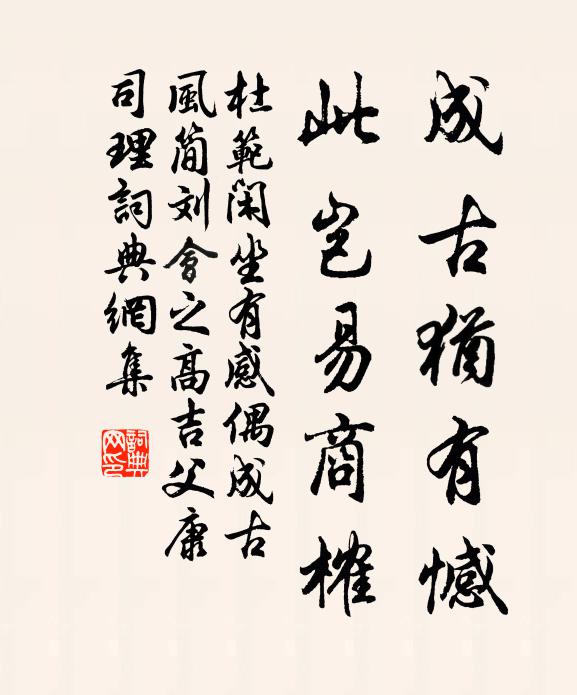 成古猶有憾
此岂易商榷
杜範閑坐有感偶成古
風簡刘會之高吉父康
司理詞典網集
詞典網印